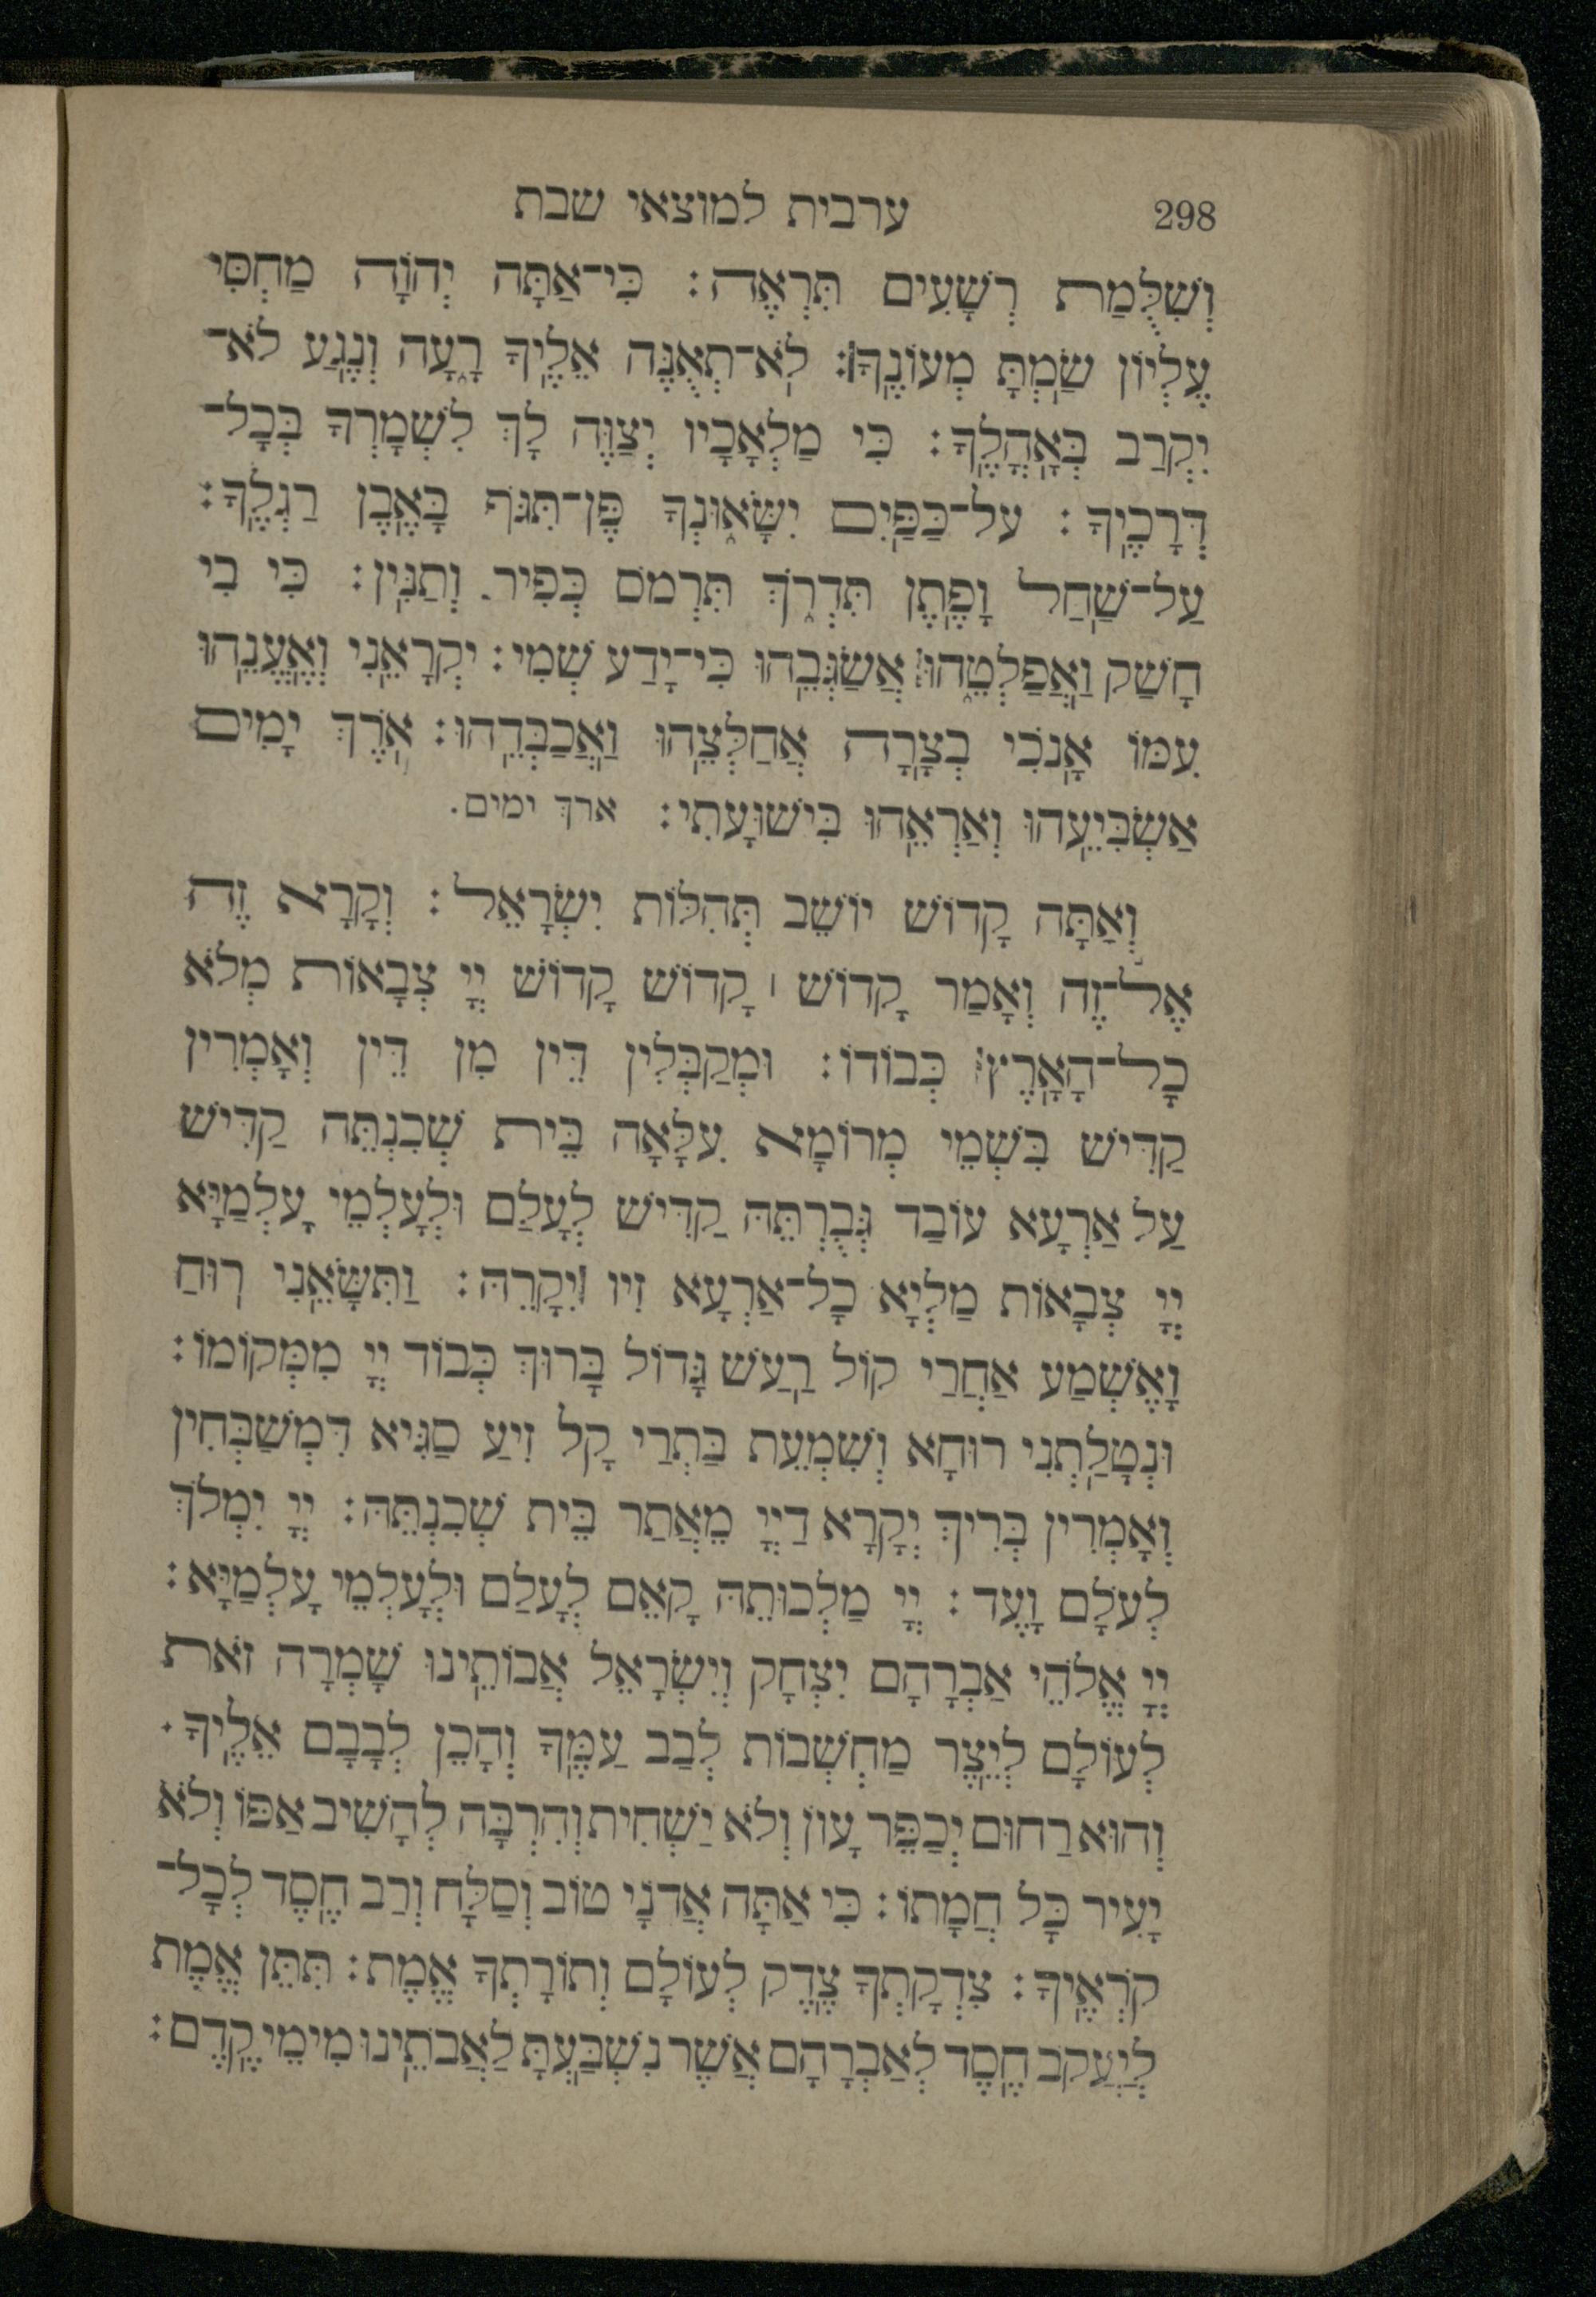 298 ערבית למוצאי שבת
וְשִׁלֻּמַת רְשָׁעִים תִּרְאֶה: כִּי־אַתָּה יְהוָֹה מַחְסִּי
עֶלְיוֹן שַׂמְתָּ מְעוֹנֶךָ: לֹא־תְאֻנֶּה אֵלֶיךָ רָעָה וְנֶגַע לֹא־
יִקְרַב בְּאָהֳלֶךָ: כִּי מַלְאָכָיו יְצַוֶּה לָּךְ לִשְׁמָרְךָ בְּכָל־
דְּרָכֶיךָ: עַל־כַּפַּיִם יִשָּׂאוּנְךָ פֶּן־תִּגֹּף בָּאֶבֶן רַגְלֶךָ:
עַל־שַׁחַל וָפֶתֶן תִּדְרֹךְ תִּרְמֹס כְּפִיר וְתַנִּין: כִּי בִי
חָשַׁק וַאֲפַלְּטֵהוּ אֲשַׂגְּבֵהוּ כִּי־יָדַע שְׁמִי: יִקְרָאֵנִי וְאֶעֱנֵהוּ
עִמּוֹ אָנֹכִי בְצָרָה אֲחַלְּצֵהוּ וַאֲכַבְּדֵהוּ: אֹרֶךְ יָמִים
אַשְׂבִּיעֵהוּ וְאַרְאֵהוּ בִּישׁוּעָתִי: ארך ימים.
וְאַתָּה קָדוֹשׁ יוֹשֵׁב תְּהִלּוֹת יִשְׂרָאֵל: וְקָרָא זֶה
אֶל־זֶה וְאָמַר קָדוֹשׁ ׀ קָדוֹשׁ קָדוֹשׁ יְיָ צְבָאוֹת מְלֹא
כָל־הָאָרֶץ כְּבוֹדוֹ: וּמְקַבְּלִין דֵּין מִן דֵּין וְאָמְרִין
קַדִּישׁ בִּשְׁמֵי מְרוֹמָא עִלָּאָה בֵּית שְׁכִנְתֵּהּ קַדִּישׁ
עַל אַרְעָא עוֹבַד גְּבֻרְתֵּהּ קַדִּישׁ לְעָלַם וּלְעָלְמֵי עָלְמַיָּא
יְיָ צְבָאוֹת מַלְיָא כָל־אַרְעָא זִיו יְקָרֵהּ: וַתִּשָּׂאֵנִי רוּחַ
וָאֶשְׁמַע אַחֲרַי קוֹל רַעַשׁ גָּדוֹל בָּרוּךְ כְּבוֹד יְיָ מִמְּקוֹמוֹ:
וּנְטָלַתְנִי רוּחָא וְשִׁמְעֵת בַּתְרַי קָל זִיעַ סַגִּיא דִּמְשַׁבְּחִין
וְאָמְרִין בְּרִיךְ יְקָרָא דַיְיָ מֵאֲתַר בֵּית שְׁכִנְתֵּהּ: יְיָ יִמְלֹךְ
לְעֹלָם וָעֶד: יְיָ מַלְכוּתֵהּ קָאֵם לְעָלַם וּלְעָלְמֵי עָלְמַיָּא:
יְיָ אֱלֹהֵי אַבְרָהָם יִצְחָק וְיִשְׂרָאֵל אֲבוֹתֵינוּ שָׁמְרָה זֹאת
לְעוֹלָם לְיֵצֶר מַחְשְׁבוֹת לְבַב עַמֶּךָ וְהָכֵן לְבָבָם אֵלֶיךָ.
וְהוּא רַחוּם יְכַפֵּר עָוֹן וְלֹא יַשְׁחִית וְהִרְבָּה לְהָשִׁיב אַפּוֹ וְלֹא
יָעִיר כָּל חֲמָתוֹ: כִּי אַתָּה אֲדֹנָי טוֹב וְסַלָּח וְרַב חֶסֶד לְכָל־
קֹרְאֶיךָ: צִדְקָתְךָ צֶדֶק לְעוֹלָם וְתוֹרָתְךָ אֱמֶת: תִּתֵּן אֱמֶת
לְיַעֲקֹב חֶסֶד לְאַבְרָהָם אֲשֶׁר נִשְׁבַּעְתָּ לַאֲבֹתֵינוּ מִימֵי קֶדֶם: